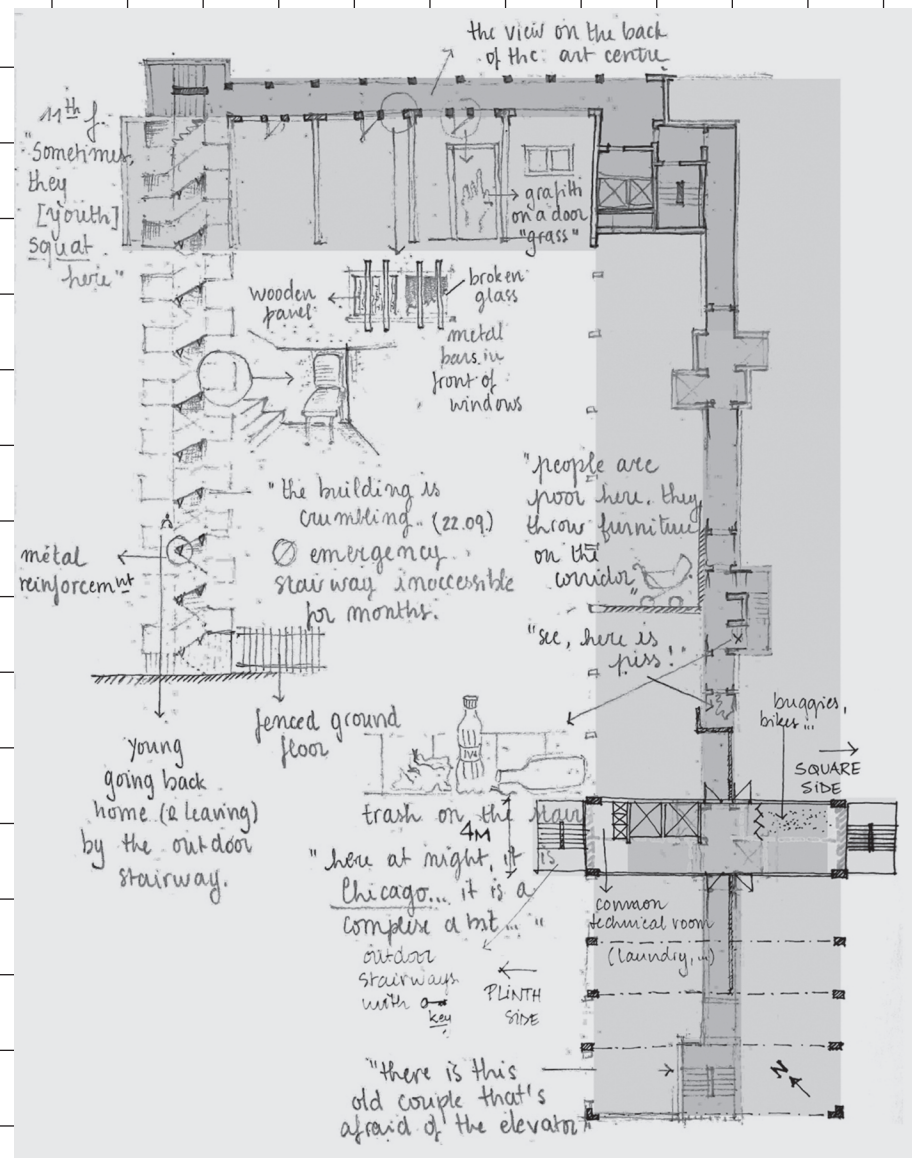 the view on the back
of the art centre
11th f.
"Sometimes,
they
[youth]
squat
here"
grafiti
on a door
"grass"
wooden
panel
broken
glass
metal
bars in
front of
windows
"people are
poor here. they
throw furniture
on the
corridor"
"the building is
crumbling.. (22.09.)
emergency
stairway inaccessible
for months.
métal
reinforcement
"see, here is
piss!"
buggies,
bikes...
SQUARE
SIDE
fenced ground
floor
young
going back
home (& leaving)
by the outdoor
stairway.
trash on the stair
4M
"here at night, it is
Chicago... it is a
comprise a bit... "
common
technical room
(laundry, ...)
outdoor
stairways
with a
key
PLINTH
SIDE
"there is this
old couple that's
afraid of the elevator"
N